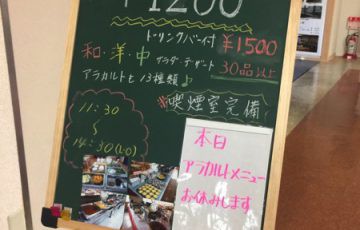 ¥1200
ドリンクバー付 ¥1500
和・洋・中 サラダ・デザート 30品以上
アラカルトも13種類♪
喫煙室完備
11:30
〜
14:30(L.O)
本日
アラカルトメニュー
お休みします